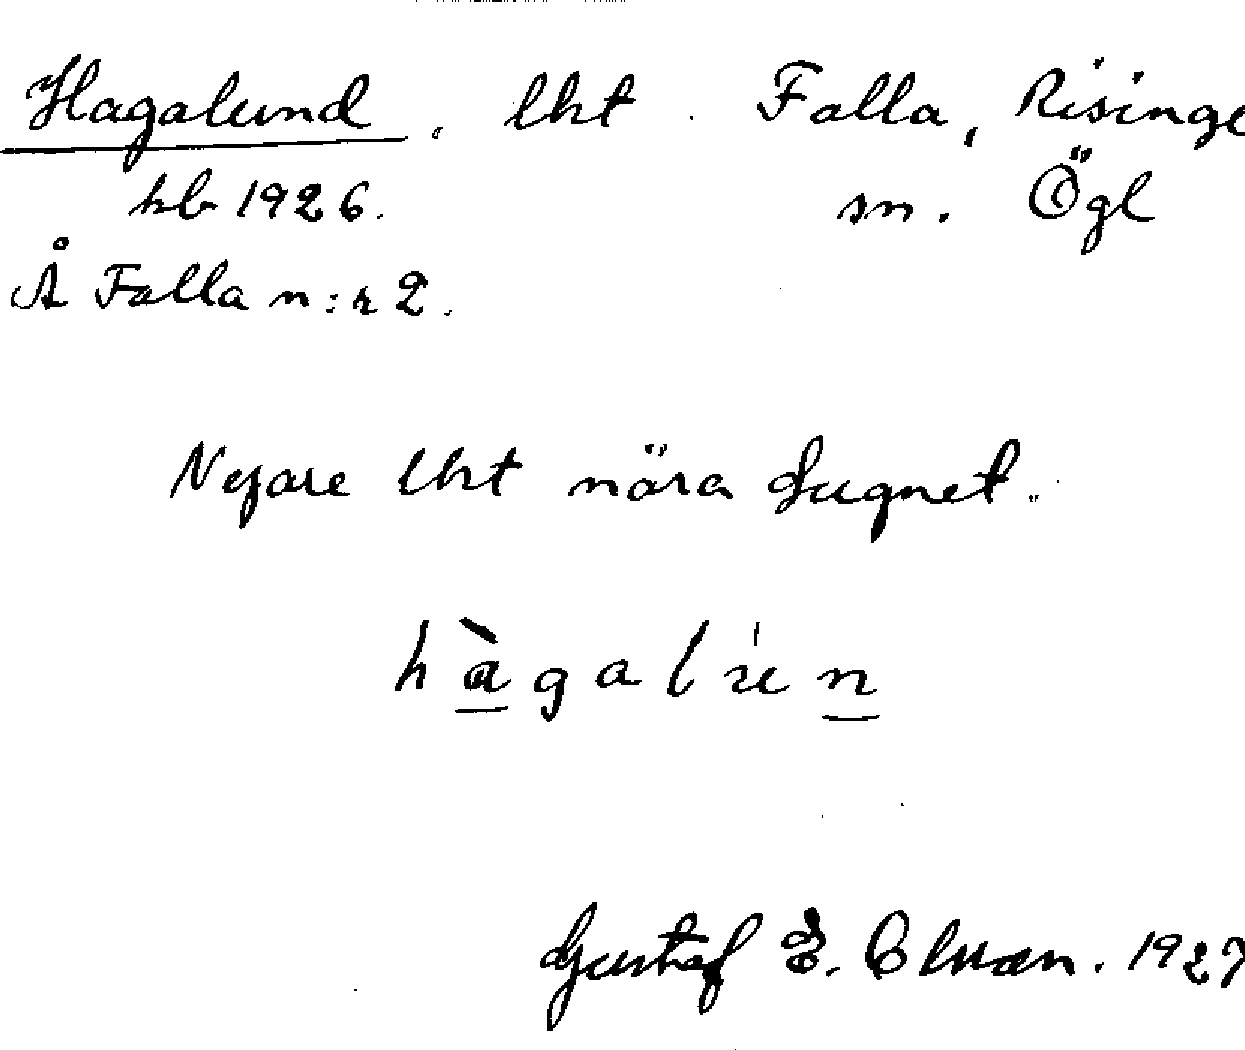 Hagalund. lht. Falla, Risinge
kb 1926. sn. Ögl
Å Falla n:r 2.
Nyare lht nära Lugnet.
hàgalun
Gustaf E. Olsson. 1927